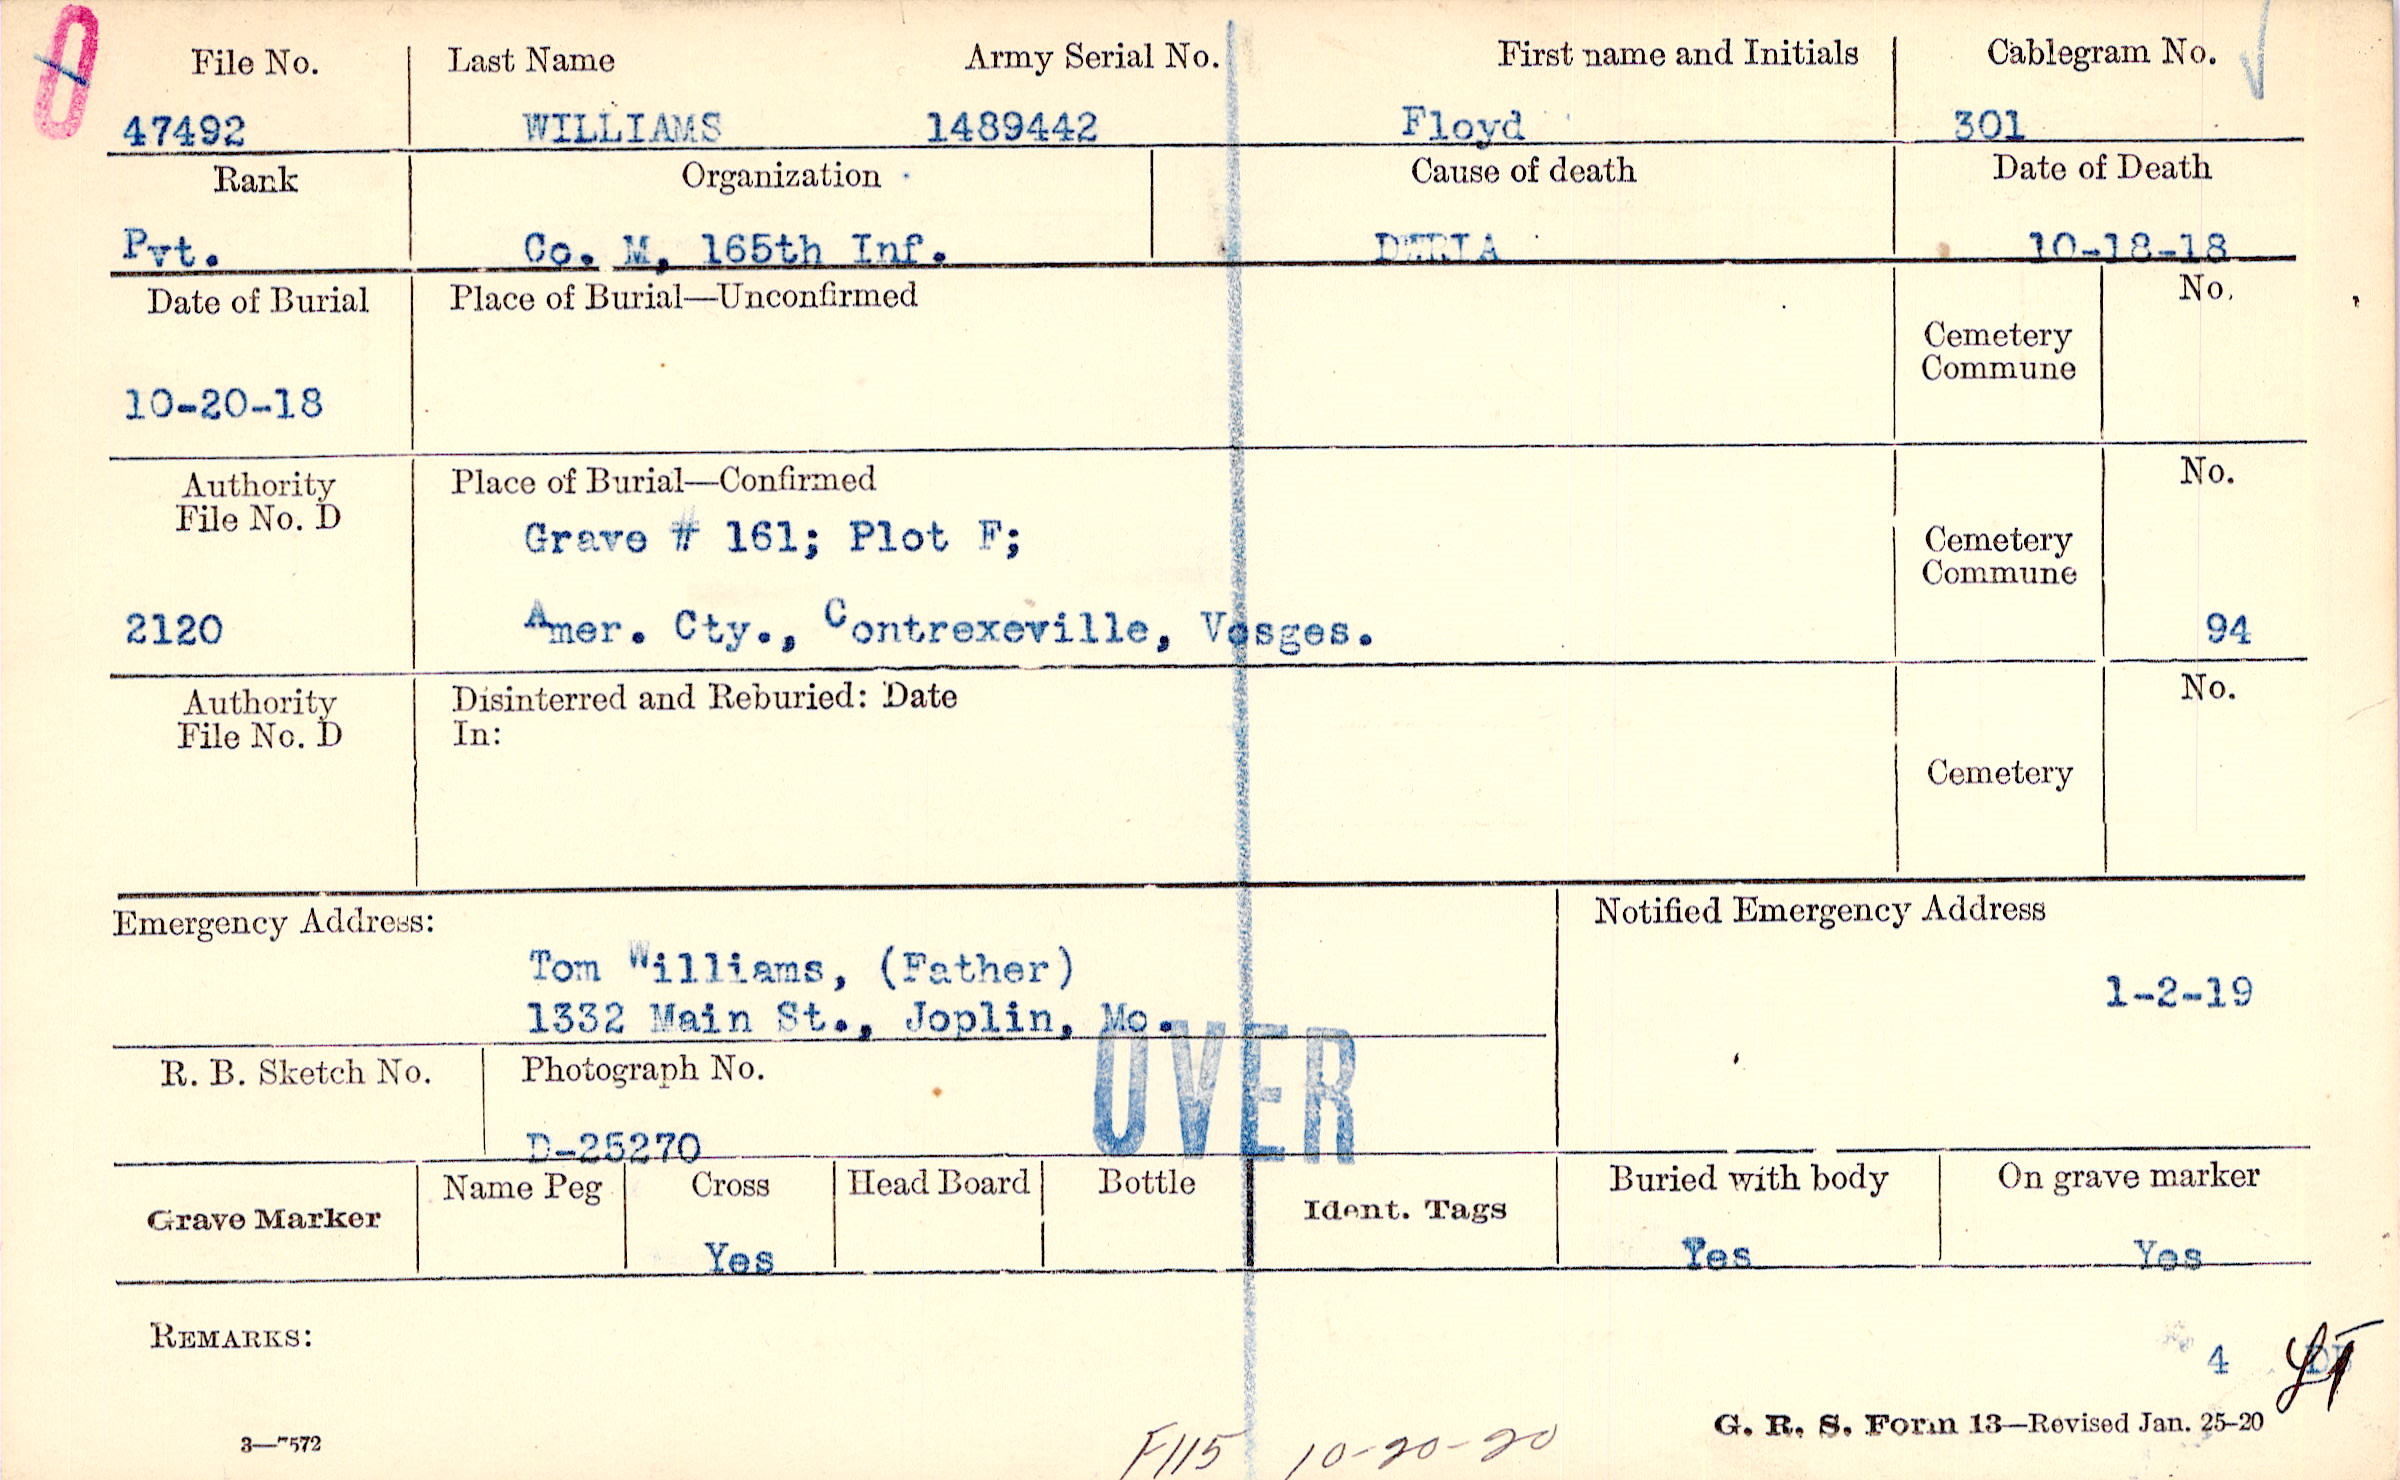 File No. Last Name Army Serial No. First name and Initials Cablegram No.
47492 WILLIAMS 1489442 Floyd 301
Rank Organization Cause of death Date of Death
Pvt. Co. M, 165th Inf. DWRIA 10-18-18
Date of Burial Place of Burial—Unconfirmed No.
Cemetery
Commune
10-20-18
Authority Place of Burial—Confirmed No.
File No. D
Grave # 161; Plot F; Cemetery
Commune
2120 Amer. Cty., Contrexeville, Vosges. 94
Authority Disinterred and Reburied: Date No.
File No. D In:
Cemetery
Emergency Address: Notified Emergency Address
Tom Williams, (Father)
1-2-19
1332 Main St., Joplin, Mo.
OVER
R. B. Sketch No. Photograph No.
D-25270
Grave Marker Name Peg Cross Head Board Bottle Ident. Tags Buried with body On grave marker
Yes Yes Yes
REMARKS:
4
G. R. S. Form 13—Revised Jan. 25-20
3—7572
F115 10-20-20